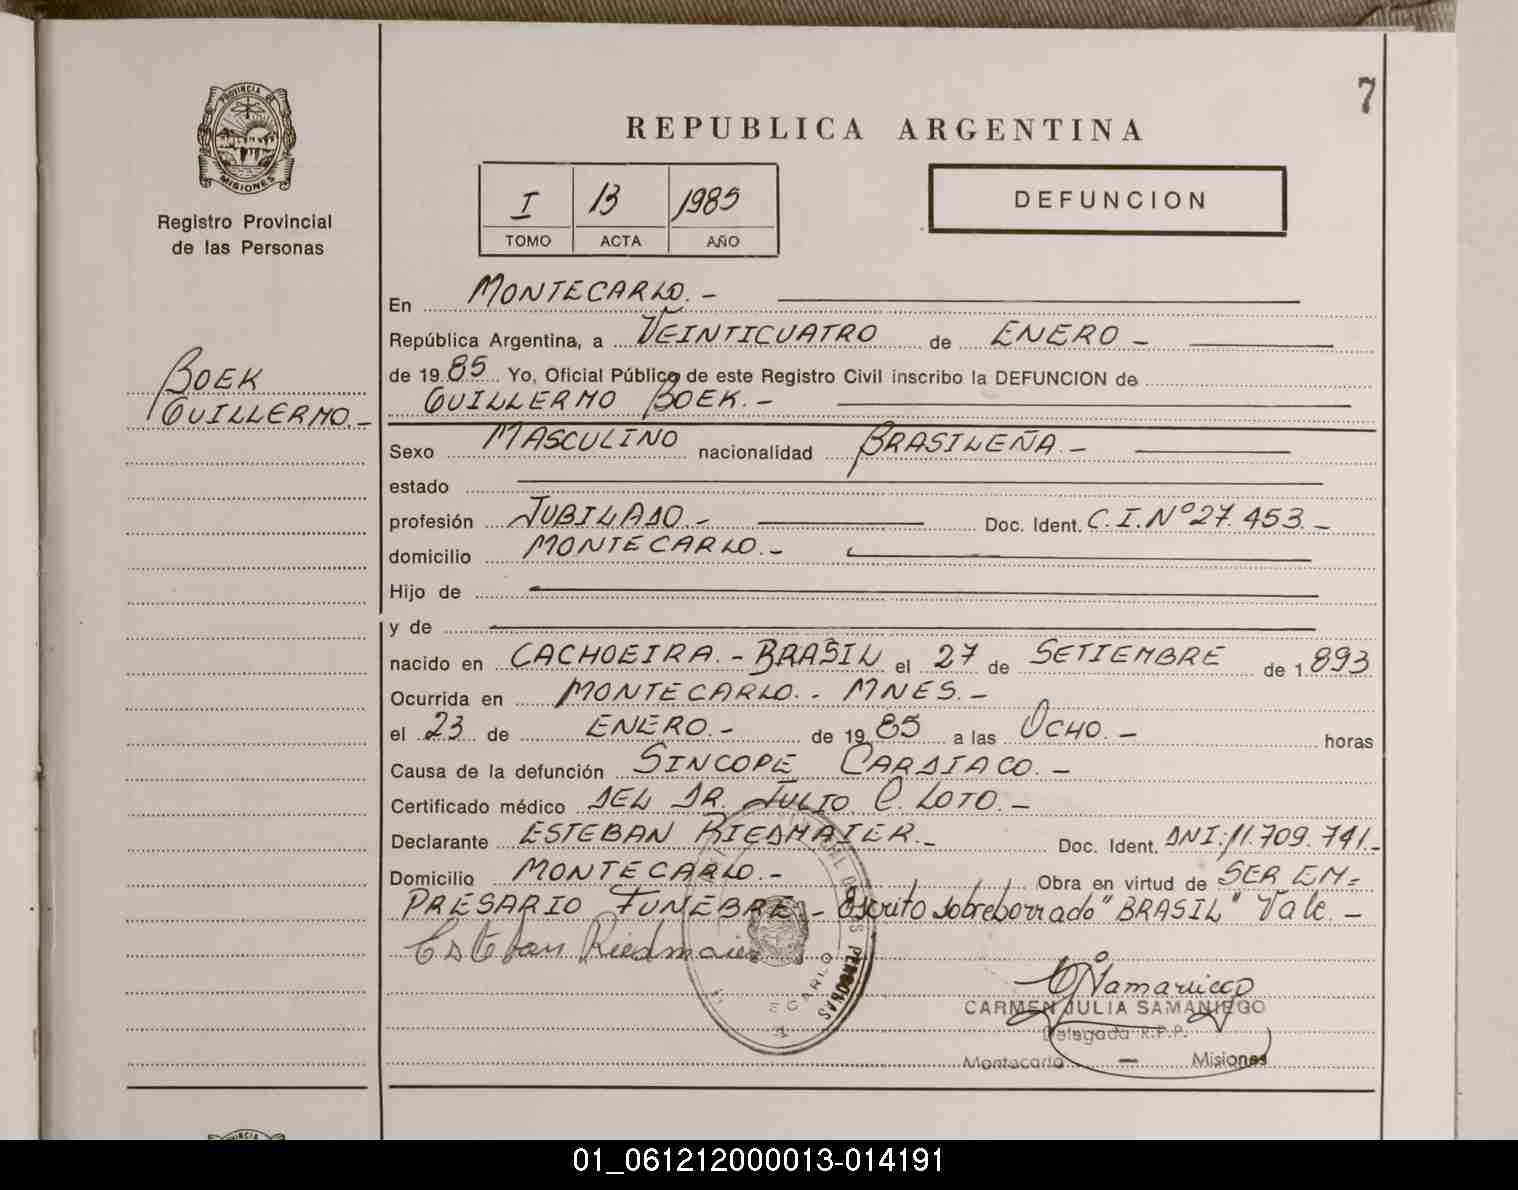 7
PROVINCIA DE
MISIONES
Registro Provincial
de las Personas
BOEK
GUILLERMO.-
REPUBLICA ARGENTINA
I 13 1985
TOMO ACTA AÑO
DEFUNCION
En MONTECARLO.-
República Argentina, a VEINTICUATRO de ENERO -
de 1985 Yo, Oficial Público de este Registro Civil inscribo la DEFUNCION de
GUILLERMO BOEK.-
Sexo MASCULINO nacionalidad BRASILEÑA.-
estado
profesión JUBILADO.- Doc. Ident. C.I.Nº27.453.-
domicilio MONTECARLO.-
Hijo de
y de
nacido en CACHOEIRA.-BRASIL el 27 de SETIEMBRE de 1893
Ocurrida en MONTECARLO.- MNES.-
el 23 de ENERO.- de 1985 a las OCHO.- horas
Causa de la defunción SINCOPE CARDIACO.-
Certificado médico DEL DR. JULIO C. LOTO.-
Declarante ESTEBAN RIEDMAIER.- Doc. Ident. DNI:11.709.741.-
Domicilio MONTECARLO.- Obra en virtud de SER EM=
PRESARIO FUNEBRE.- Escrito sobreborrado "BRASIL" Vale.-
Esteban Riedmaier
PERSONAS
CJSamaniego
CARMEN JULIA SAMANIEGO
Delegada R.P.P.
Montecarlo — Misiones
01_061212000013-014191